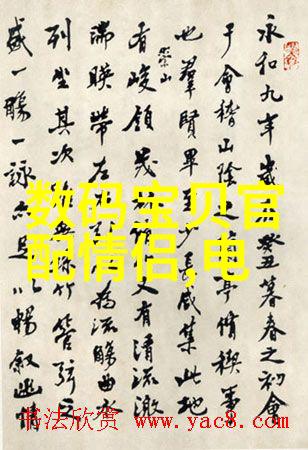 永和九年歲癸丑暮春之初會
于會稽山陰之亭脩稧事
也羣賢畢至少長咸集此地
崇山
有峻領茂又有清流激
湍暎帶左為流觴曲水
列坐其次竹管弦之
盛一觴一詠亦足以暢敘幽情
数码宝贝官
配情侣,电
书法欣赏 www.yac8.com